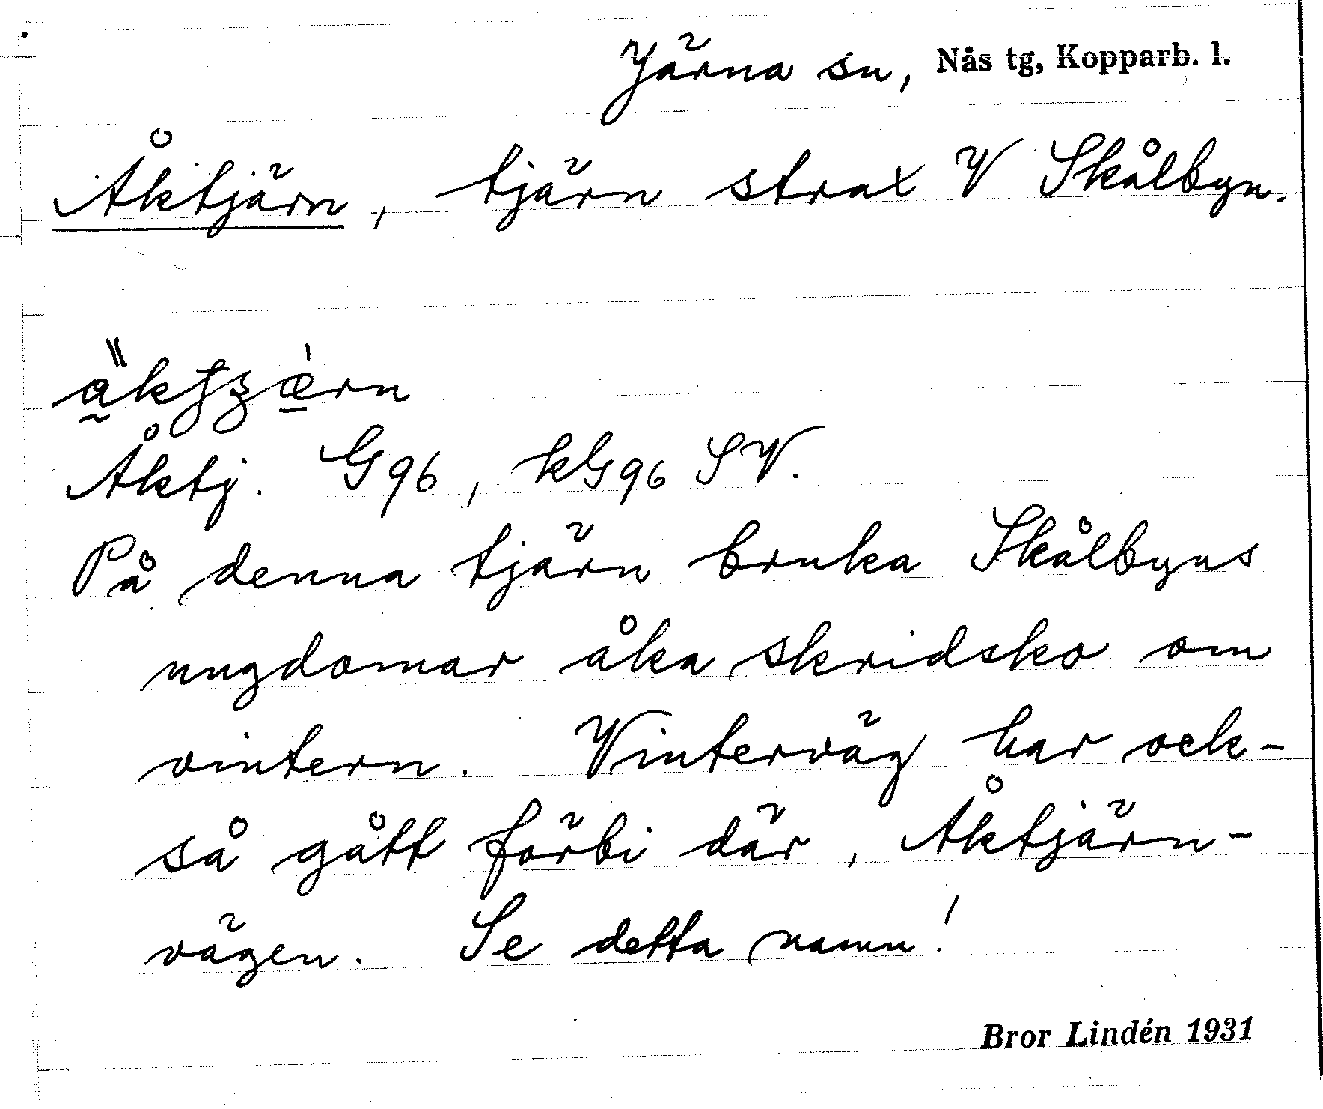 Järna sn, Nås tg, Kopparb. l.
Åktjärn, tjärn strax V Skålbyn.
Åktj. G96, kG96 SV.
På denna tjärn bruka Skålbyns
ungdomar åka skridsko om
vintern. Vinterväg har ock-
så gått förbi där, Åktjärn-
vägen. Se detta namn!
Bror Lindén 1931